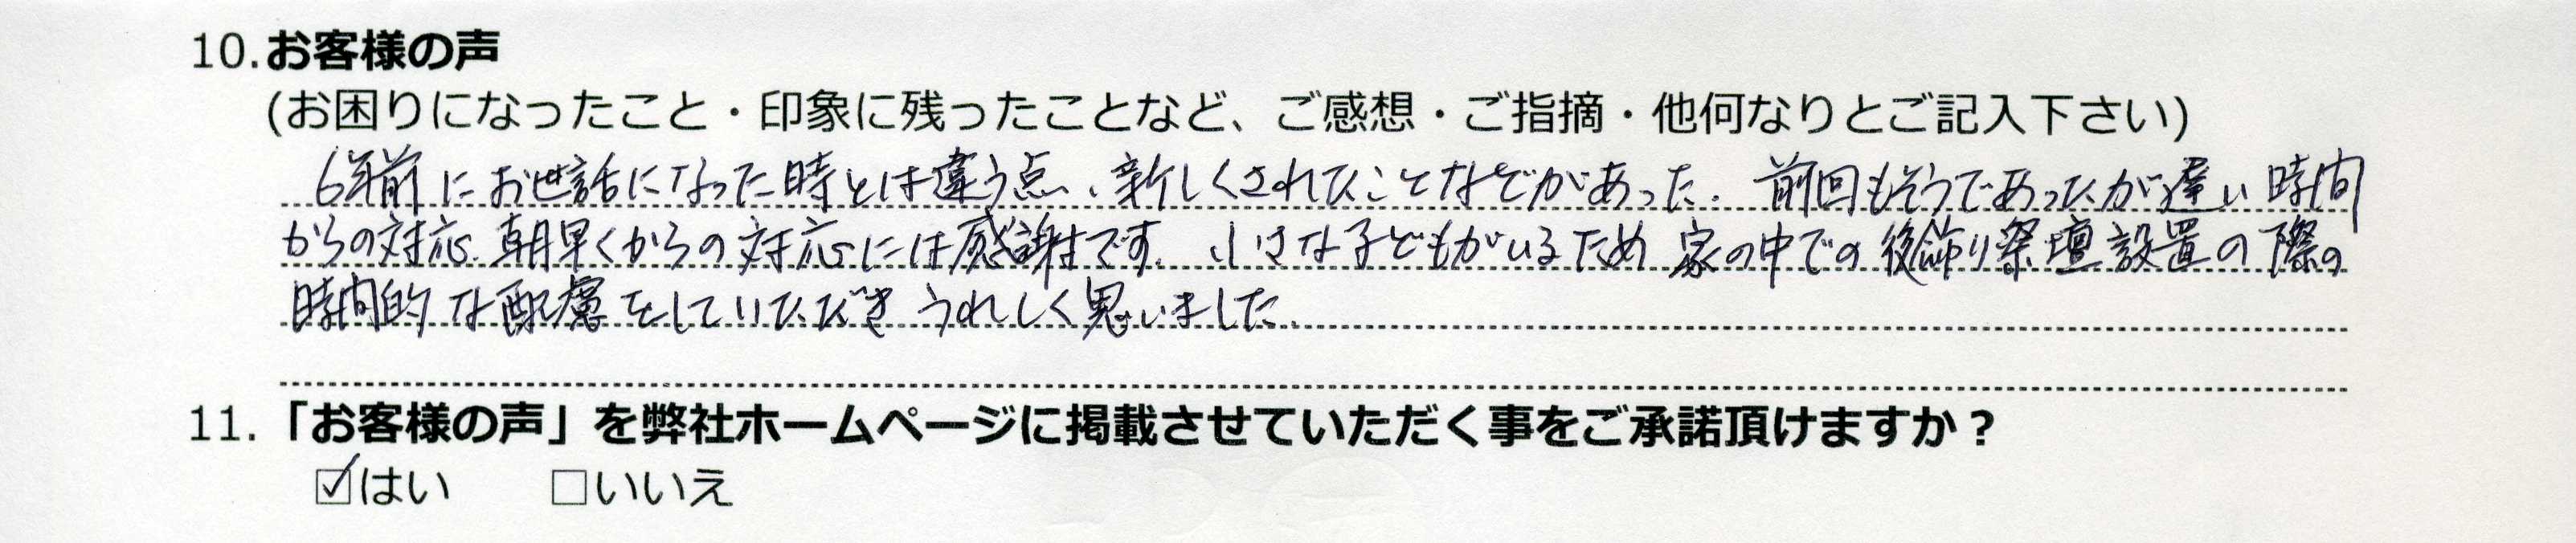 10.お客様の声
(お困りになったこと・印象に残ったことなど、ご感想・ご指摘・他何なりとご記入下さい)
6年前にお世話になった時とは違う点、新しくされたことなどがあった。前回もそうであったが遅い時間
からの対応、朝早くからの対応には感謝です。小さな子どもがいるため家の中での後飾り祭壇設置の際の
時間的な配慮をしていただきうれしく思いました。
11.「お客様の声」を弊社ホームページに掲載させていただく事をご承諾頂けますか？
☑はい □いいえ